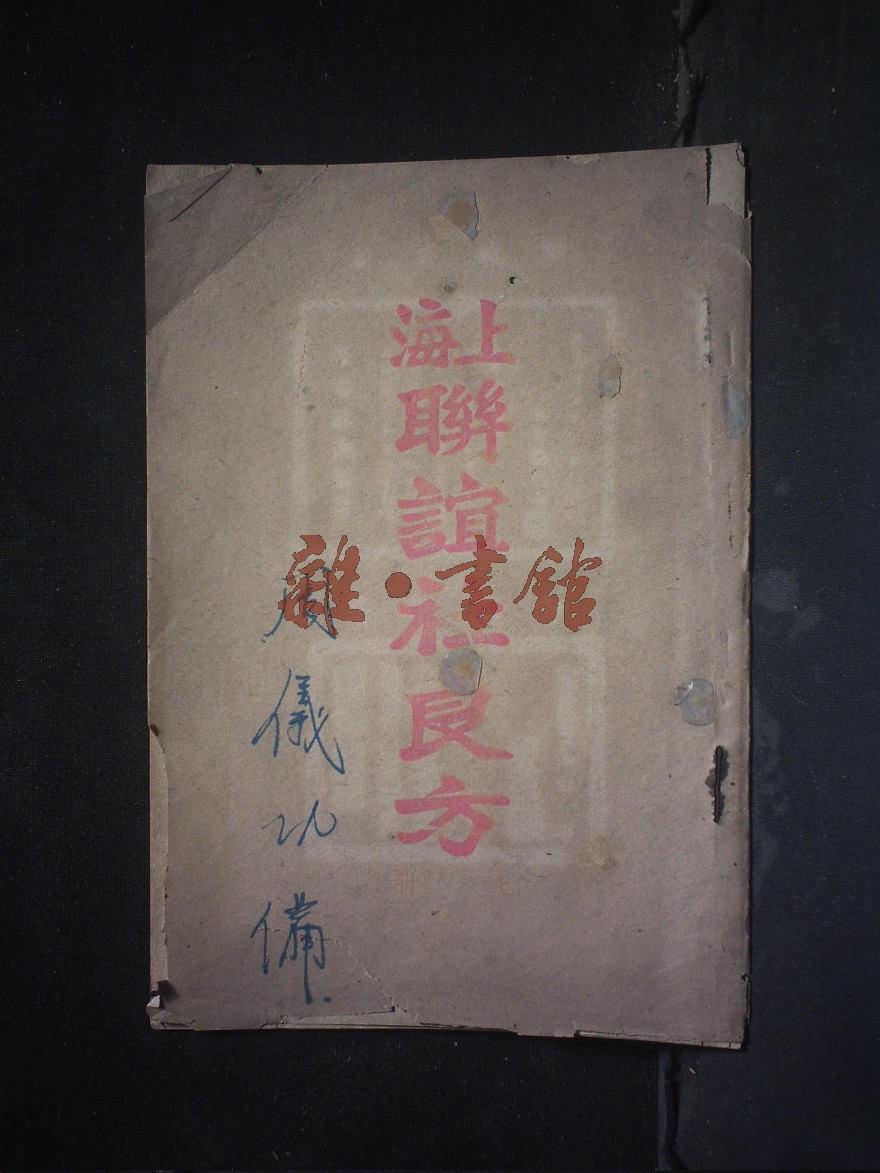 上海
聯誼社良方
上冊
儀功備
雜·書館